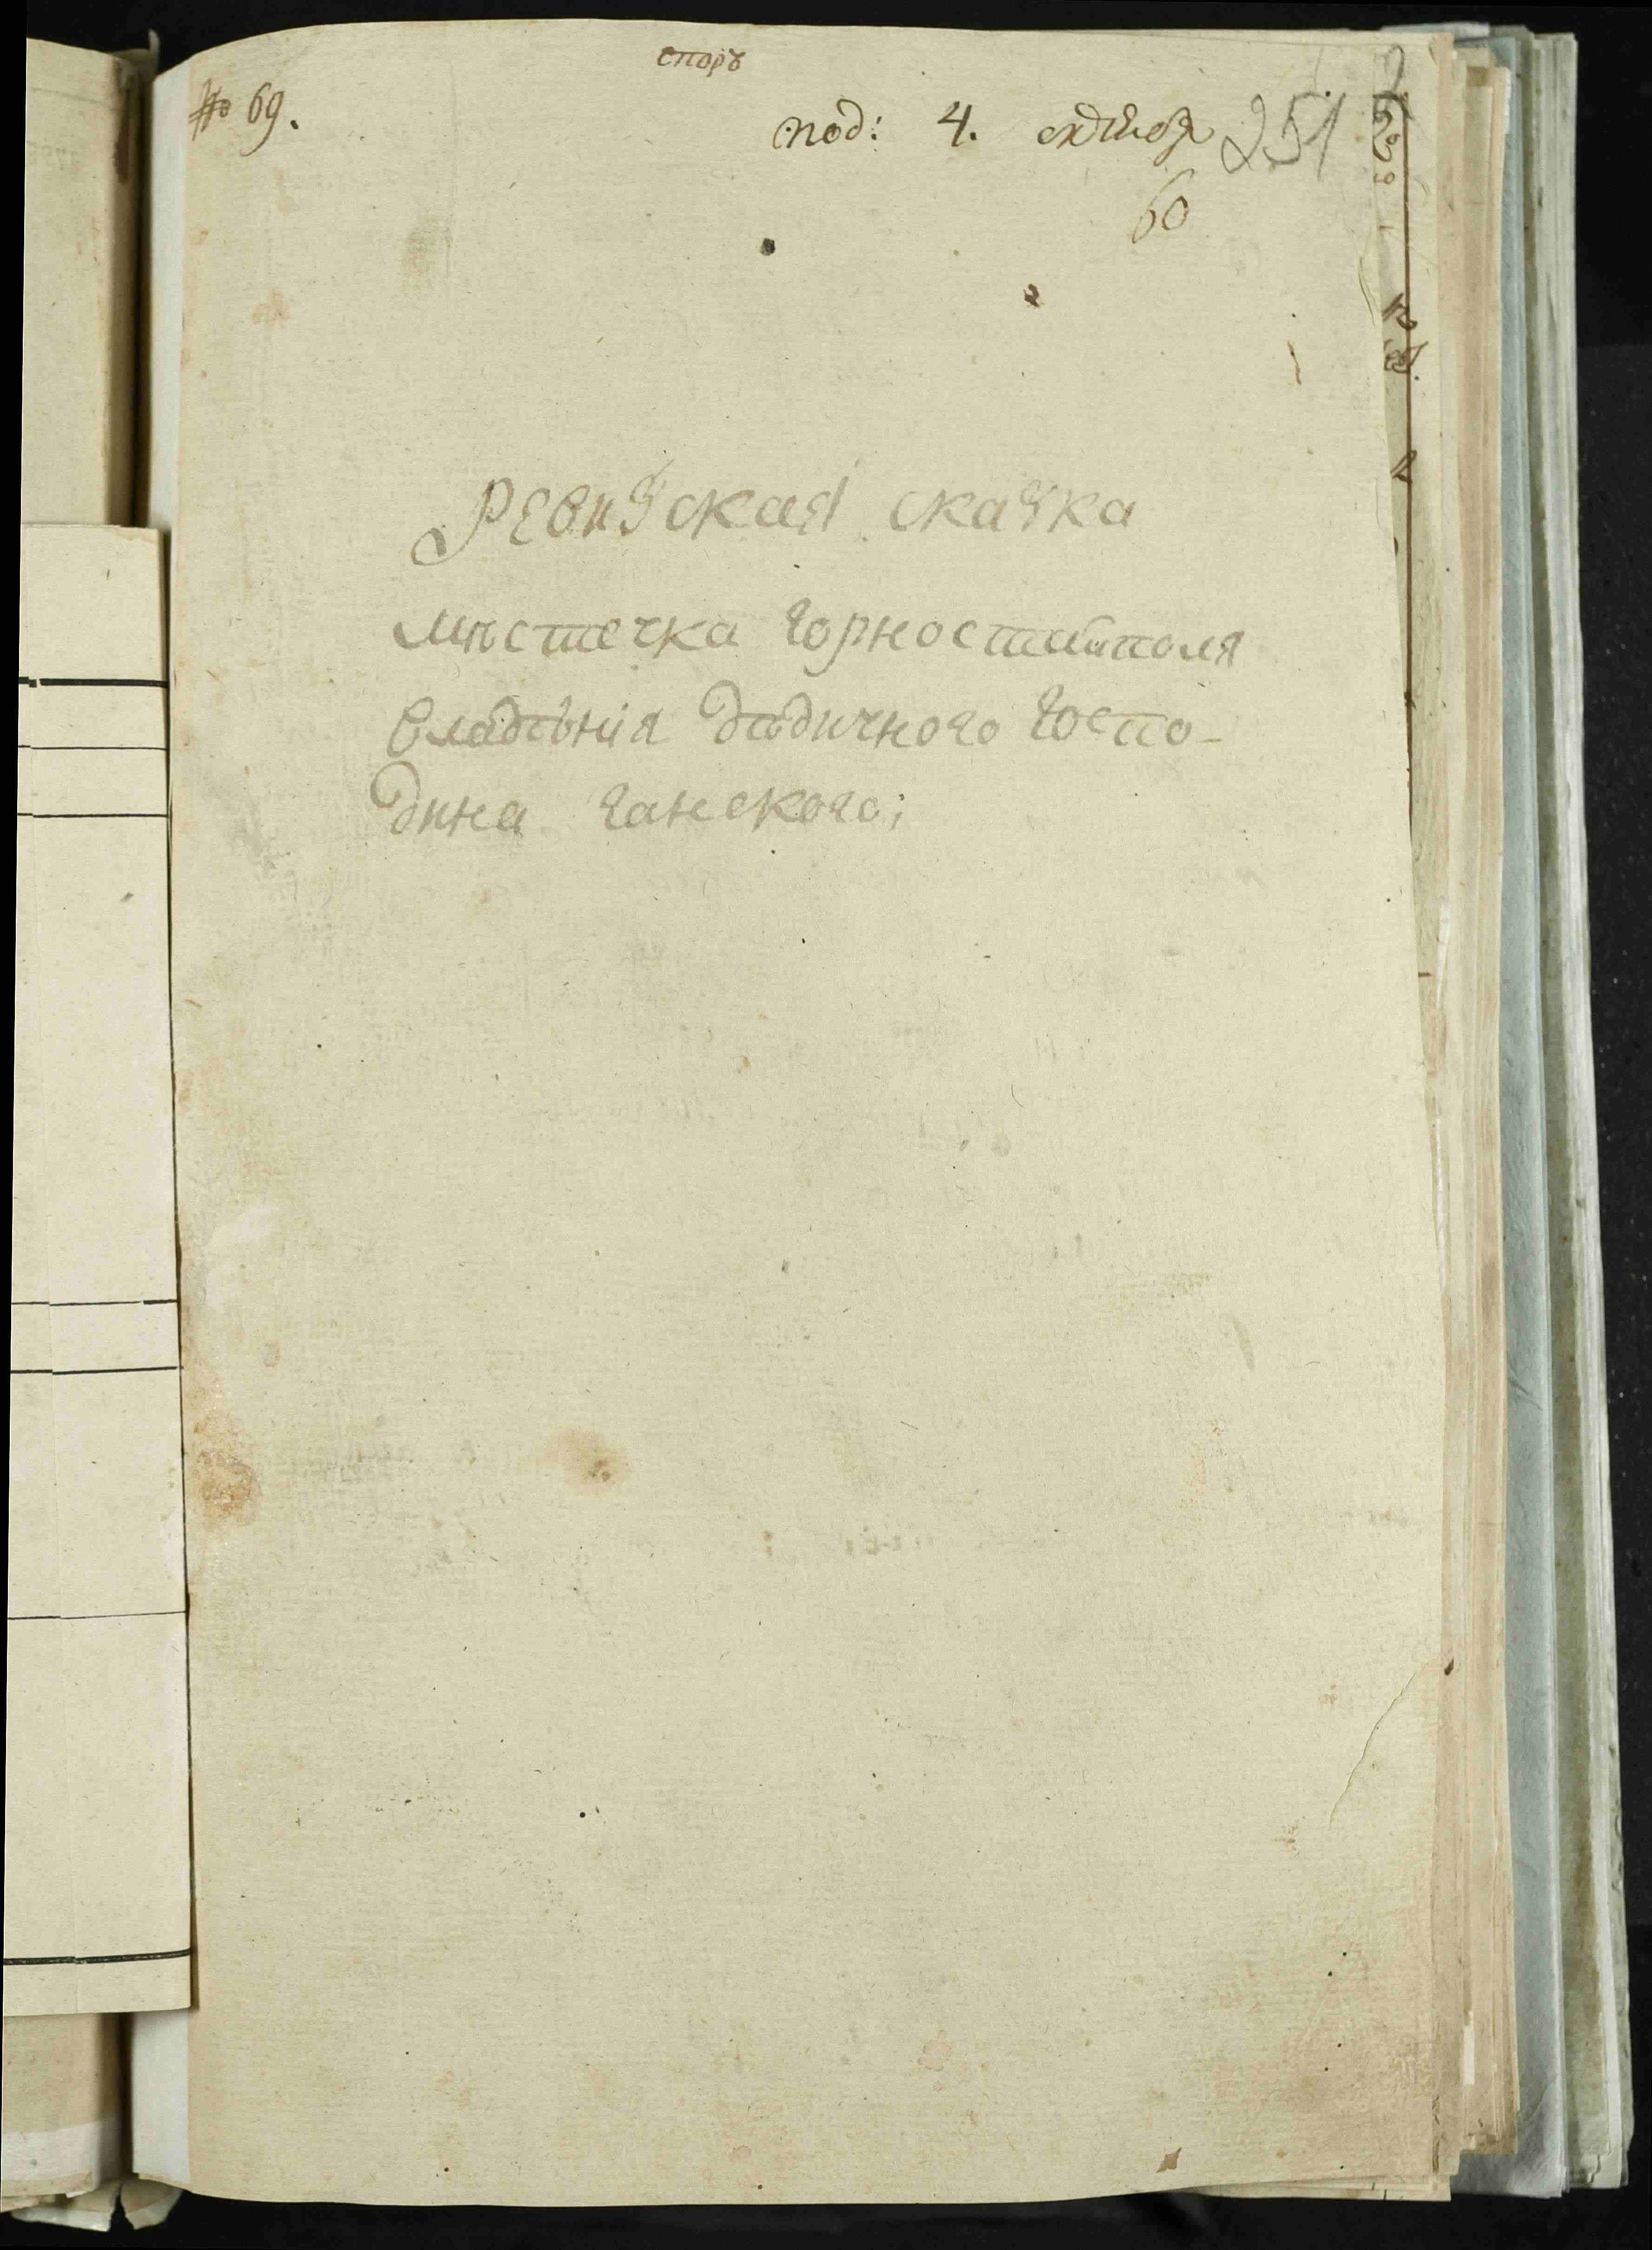 споръ
№ 69.
под: 4. октября 251
60
Ревизская сказка
мѣстечка Горностайполя
владѣнія дѣдичного Госпо-
дина Ганского;